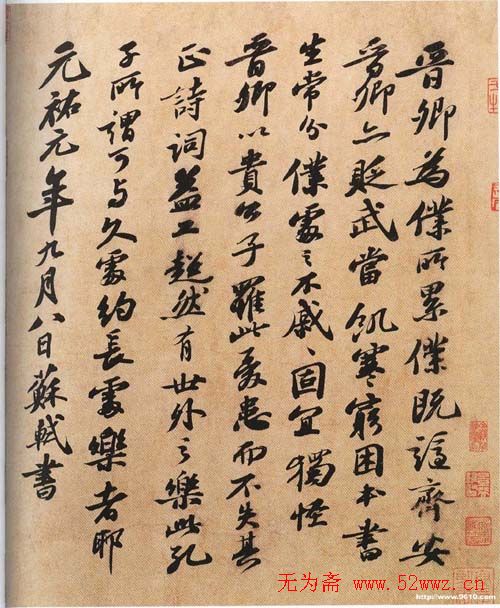 晉卿為僕所累僕既謫齊安
晉卿亦貶武當飢寒窮困本書
生常分僕處之不戚〻固宜獨怪
晉卿以貴公子罹此憂患而不失其
正詩詞益工超然有世外之樂此孔
子所謂可与久處約長處樂者耶
元祐元年九月八日蘇軾書
无为斋 www.52wwz.cn
http://www.9610.com